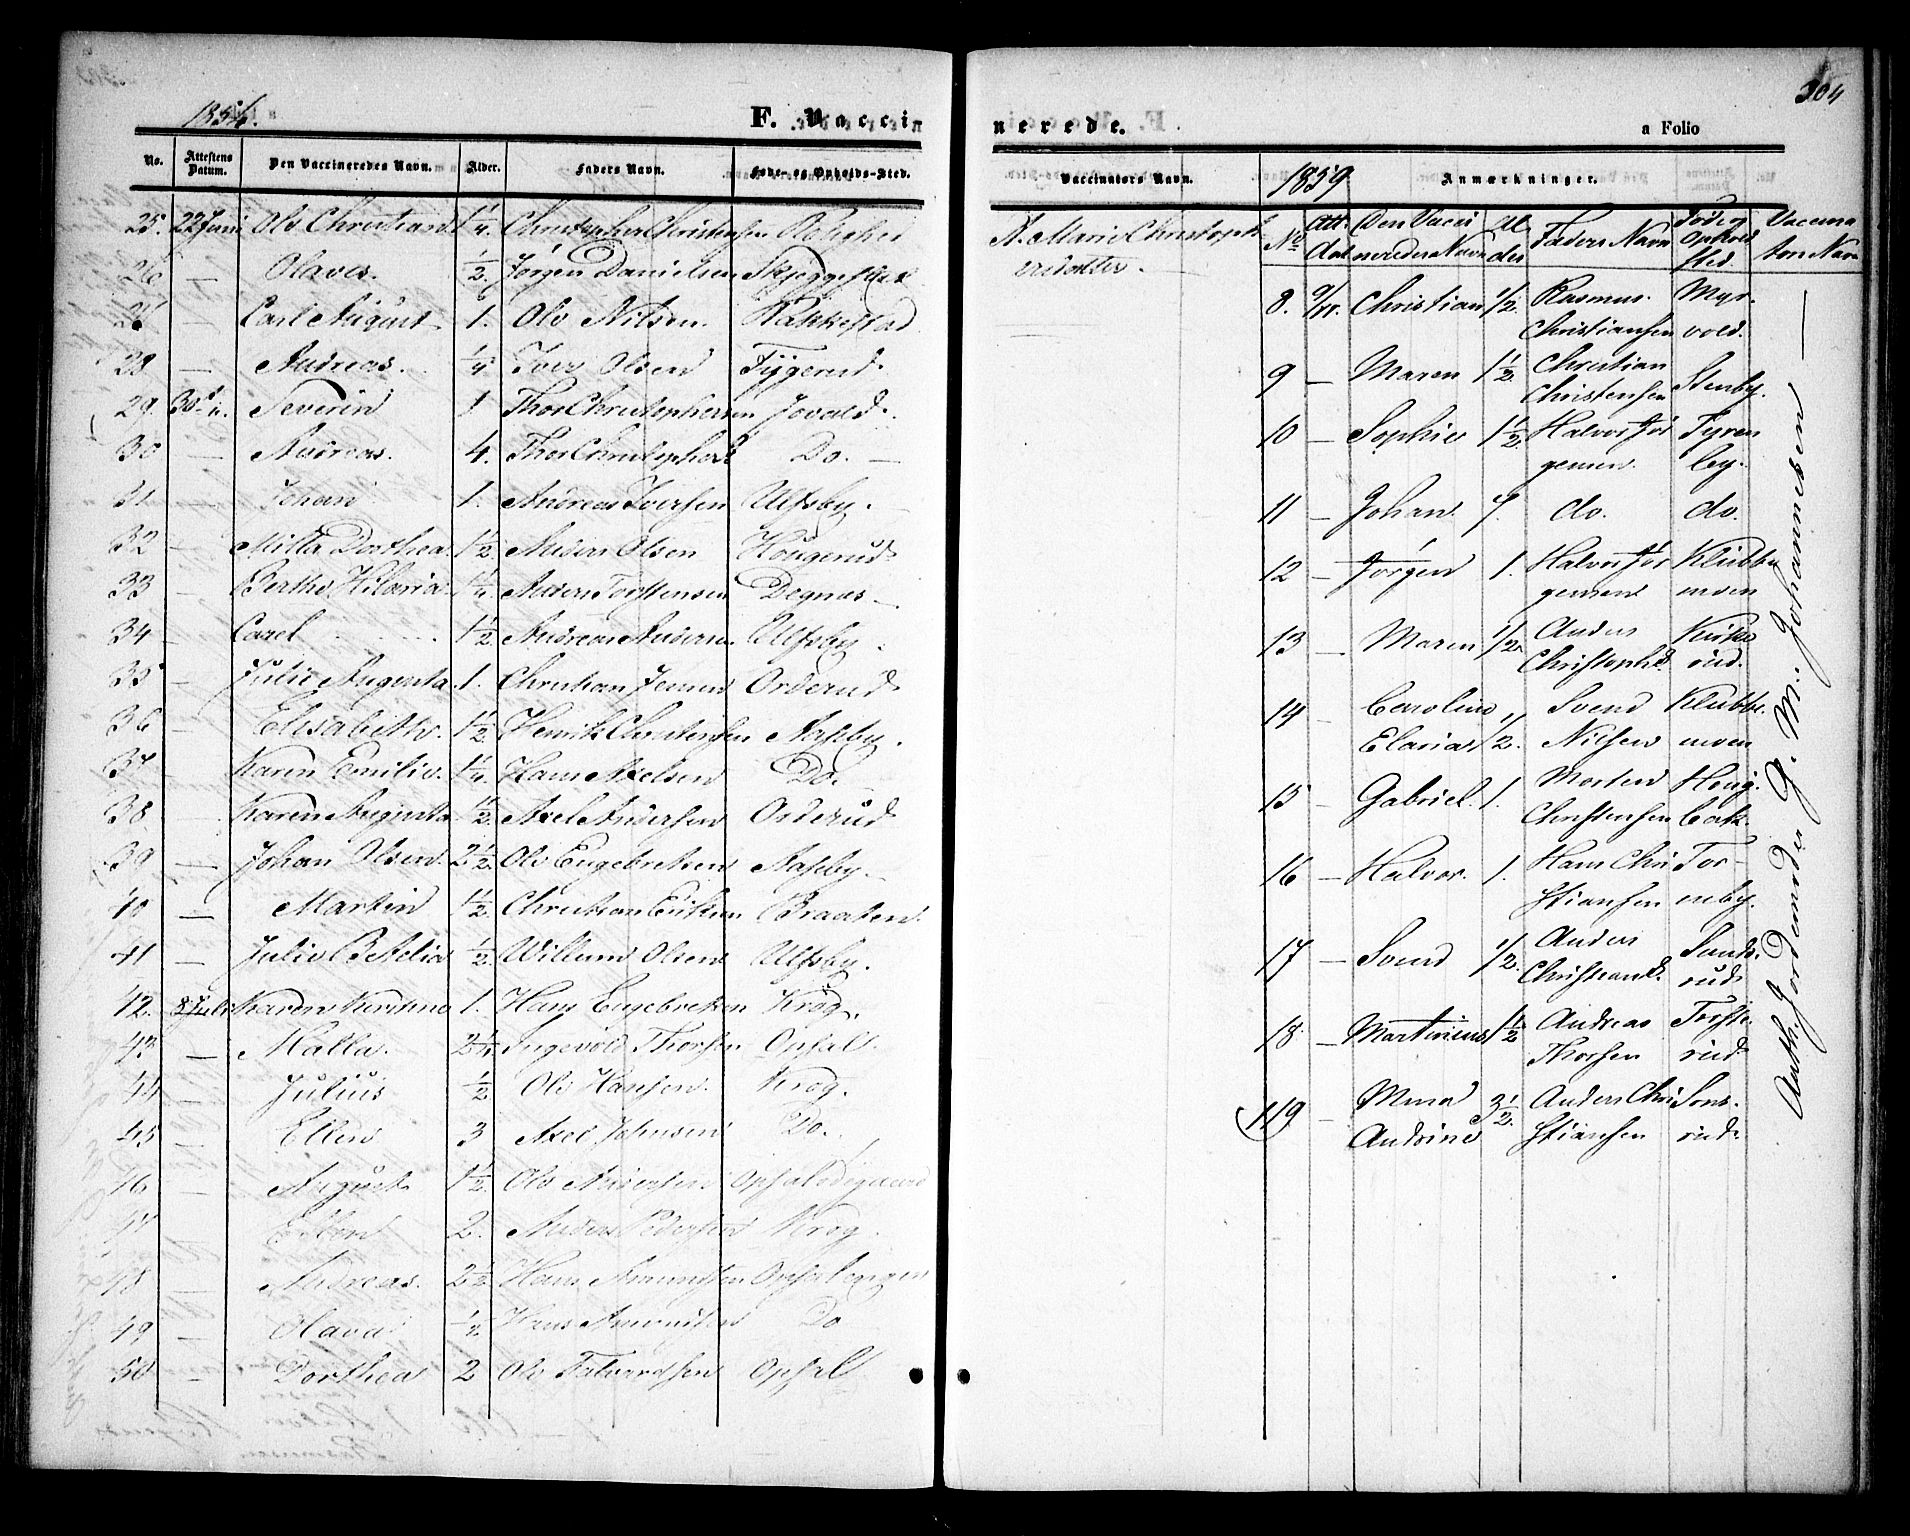 1854.
F. Vacci
No. Attestens Datum. Den Vaccineredes Navn. Alder. Faders Navn. Føde- og Opholds-Sted.
25. 22 Juni Ole Christian 1/4. Christopher Christensen
26 — Olaves. 1/2. Jørgen Danielsen
27 — Carl August 1. Ole Nilsen. Rakkestad
28 — Andreas. 1/4 Iver Olsen
29. 30 Severin 1 Thor Christophersen
30 — Andreas. 4. Thor Christophers Do. —
31 — Johan 1. Andreas Iversen Ulfsby.
32 — Milla Dorthea. 1 1/2. Anders Olsen Hougerud
33 — Berthe Hilaria 1/4. Anders Torstensen Degnæs —
34 — Carel 1 1/2. Andreas Andersen Ulfsby.
35 — Julie Augusta. 1. Christian Jensen Orderud
36 — Elisabeth. 1 1/2. Henrik Christensen Aaseby.
37 — Karen Emilie. 1 1/4. Hans Axelsen Do.
38 Karen Augusta 1/2. Axel Andersen Orderud
39 — Johan Olsen 2 1/2. Ole Engebretsen Aaseby.
40 — Martin 1 1/2. Christian Eriksen Braaten.
41 — Julie 1/2. Willum Olsen Ulfsby.
42. 8 Juli Karen Kirstine 1. Hans Engebretsen Krog.
43 — Malla. 2 1/4. Ingevold Thorsen Opsal.
44 — Julius 1/2 Ole Hansen. Krog.
45 — Ellen 3 Axel Johnsen Do.
46 — August 1 1/2. Ole Andersen Opsalødegaard
47 — Ellen 2. Anders Pedersen Krog.
48 — Andreas. 2 1/2. Hans Amundsen Opsalengen
49 — Olava 1/2. Hans Amundsen Do
50 — Dorthea 2 Ole Opsal
304
nerede.
a Folio
Vaccinators Navn. 1859 Anmærkninger.
A. Marie Christoph-
ersdatter.
No Att. Dat Den Vacci neredes Navn Al der Faders Navn Føde og Ophold sted Vaccina tors Navn
8. 9/11. Christian 1/2. Rasmus Christiansen Myr- vold.
9 — Maren 1 1/2. Christian Christensen Stenby.
10 — Sophie 1 1/2. Halvor Jør gensen. Tyren by.
11 — Johan 7. do. do.
12 — Jørgen 1. Halvor Jør gensen Klubbe moen
13 — Maren 1/2. Anders Christophs. Kirke rud.
14 — Caroline Elarias 1/2. Svend Nilsen Klubbe moen
15 — Gabriel. 1. Morten Christensen Houg- bak.
16 — Halvor. 1. Hans Chri stiansen Tor- enby.
17 — Svend 1/2. Anders Christians. Sunds- rud
18 — Martinius 1 1/2 Andreas Thorsen Torste- rud
19 — Mina Andrine 3 1/2. Anders Chri stiansen Sons- rud
Auth. Jordemoder G. M. Johannesen —